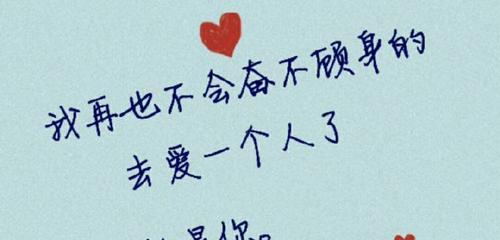 我再也不会奋不顾身的
去爱一个人了
是你。